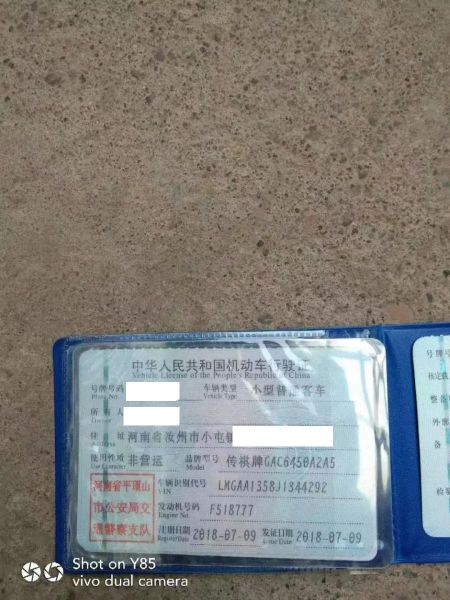 中华人民共和国机动车行驶证
Vehicle License of the People's Republic of China
号牌号码
Plate No.
车辆类型 小型普通客车
Vehicle Type
所有人
Owner
住 址 河南省汝州市小屯镇
Address
使用性质 非营运
Use Character
品牌型号 传祺牌GAC6450A2A5
Model
河南省平顶山
市公安局交
通警察支队
车辆识别代号 LMGAA1358J1344292
VIN
发动机号码 F518777
Engine No.
注册日期 2018-07-09
Register Date
发证日期 2018-07-09
Issue Date
号牌号
核定载
整备
外廓
备
检验
Shot on Y85
vivo dual camera